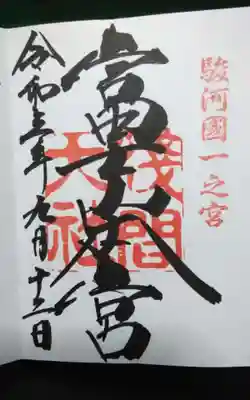 駿河國一之宮
富士大宮
淺間大社
令和三年九月十三日